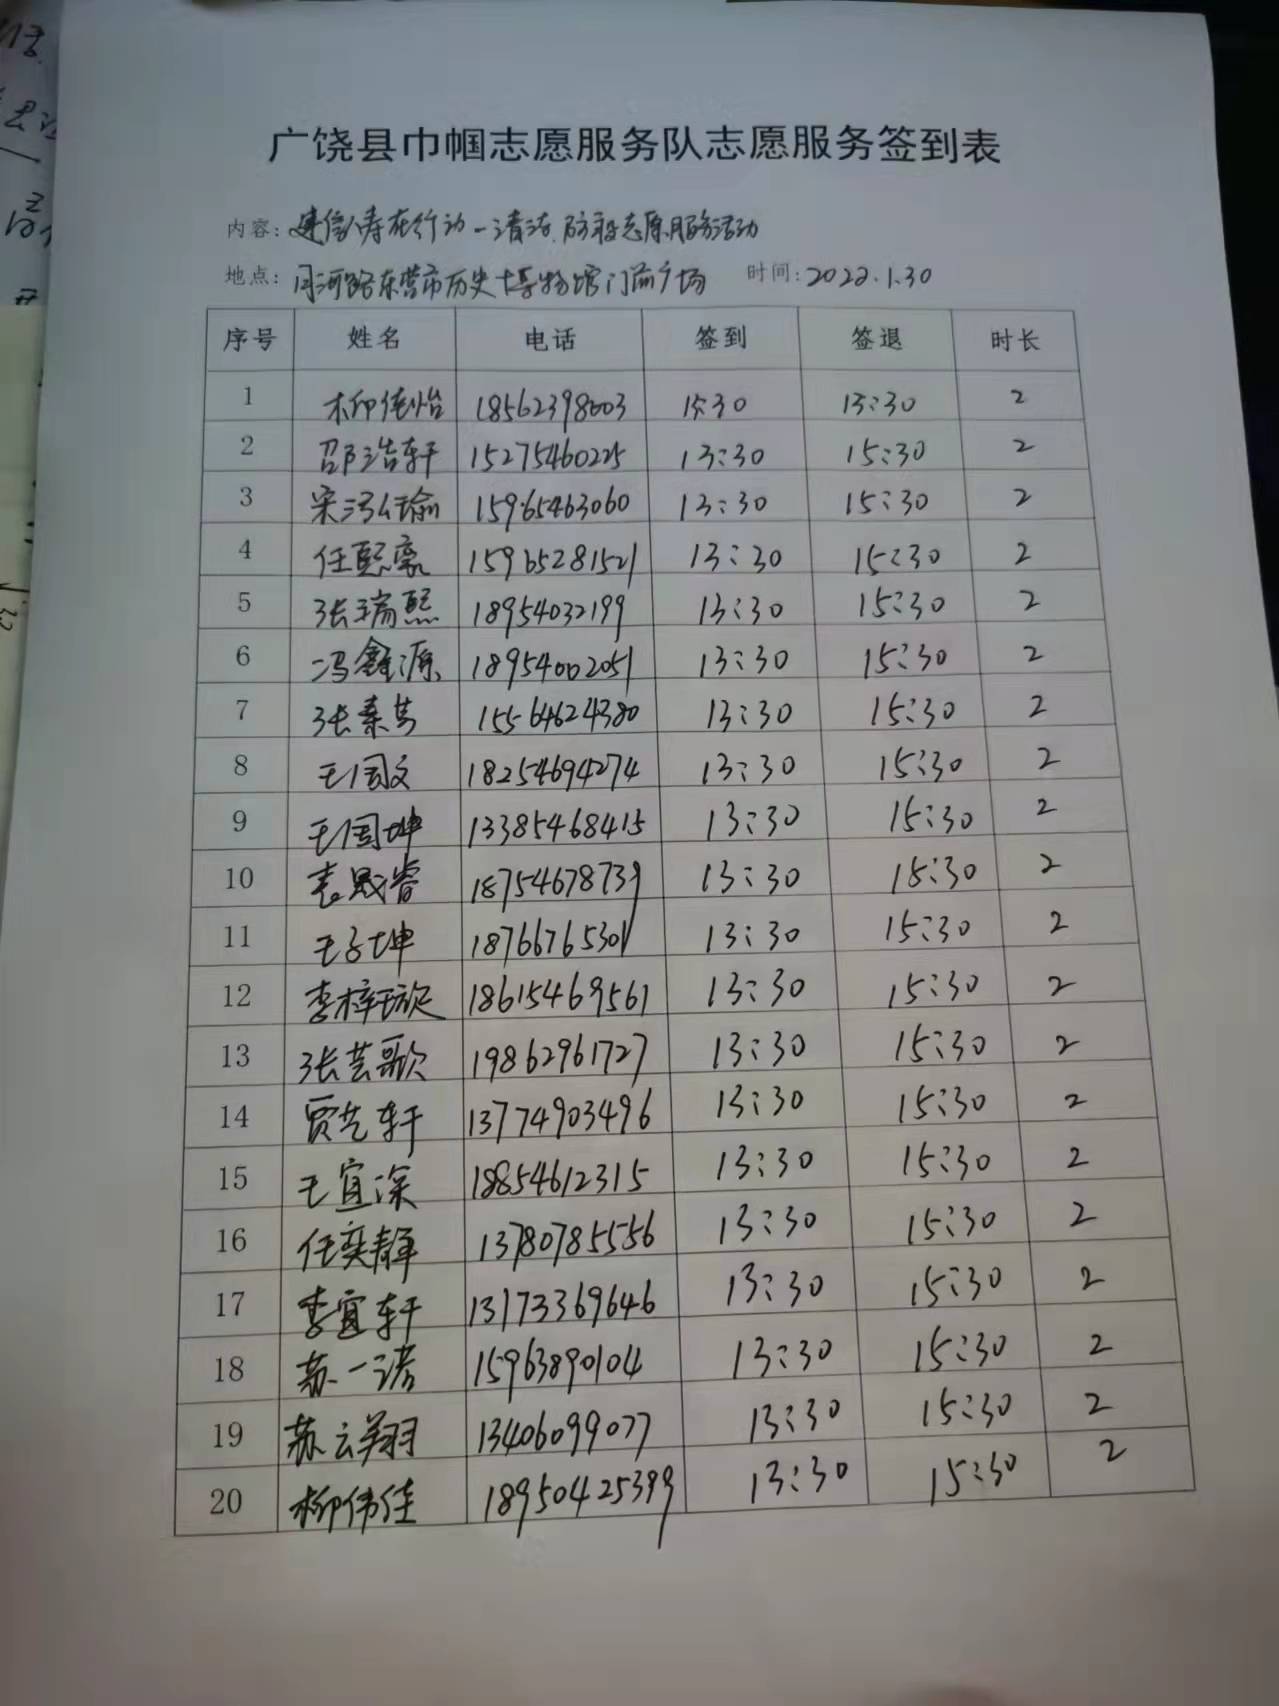 广饶县巾帼志愿服务队志愿服务签到表
内容: 建信人寿在行动一清洁、防疫志愿服务活动
地点: 月河路东营市历史博物馆门前广场 时间: 2022.1.30
序号 姓名 电话 签到 签退 时长
1 柳佳怡 18562398003 15:30 13:30 2
2 邵浩轩 15275460225 13:30 15:30 2
3 宋泓瑜 15965463060 13:30 15:30 2
4 任熙豪 15965281521 13:30 15:30 2
5 张瑞熙 18954032199 13:30 15:30 2
6 冯鑫源 18954002051 13:30 15:30 2
7 张秦芸 15564624380 13:30 15:30 2
8 王国文 18254694274 13:30 15:30 2
9 王国坤 13385468415 13:30 15:30 2
10 袁晟睿 18754678739 13:30 15:30 2
11 王子坤 18766765301 13:30 15:30 2
12 李梓琁 18615469561 13:30 15:30 2
13 张芸歌 19862961727 13:30 15:30 2
14 贾艺轩 13774903496 13:30 15:30 2
15 王宜深 18854612315 13:30 15:30 2
16 任奕静 13780785556 13:30 15:30 2
17 李宜轩 13173369646 13:30 15:30 2
18 苏一诺 15963890104 13:30 15:30 2
19 苏云翔 13406099077 13:30 15:30 2
20 柳伟佳 18950425399 13:30 15:30 2